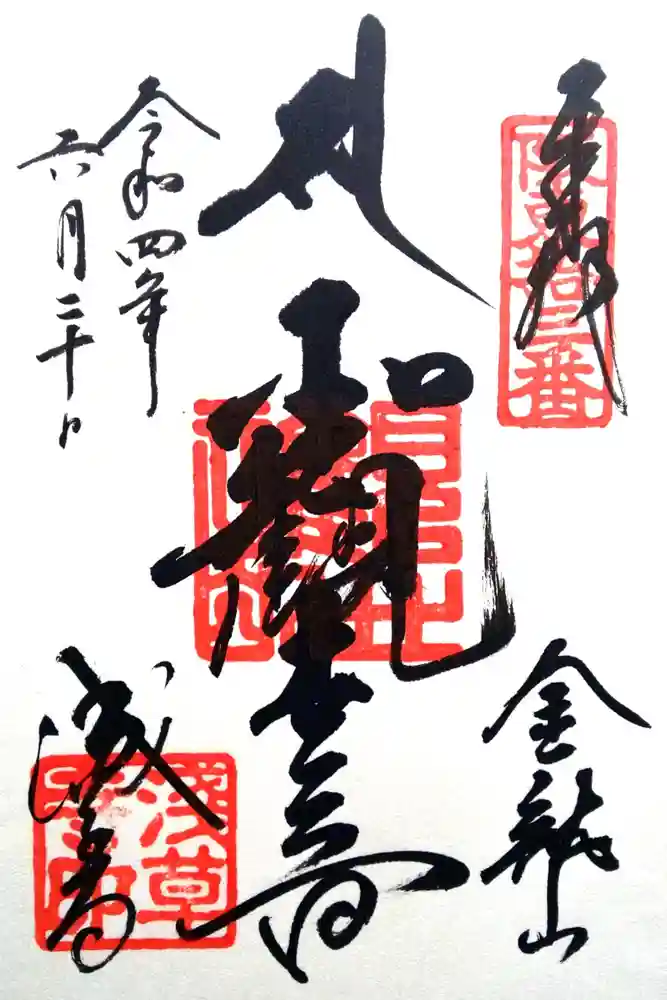 奉拝
阪東拾三番
金龍山
聖観世音
令和四年
六月二十日
浅草寺
淺草寺印